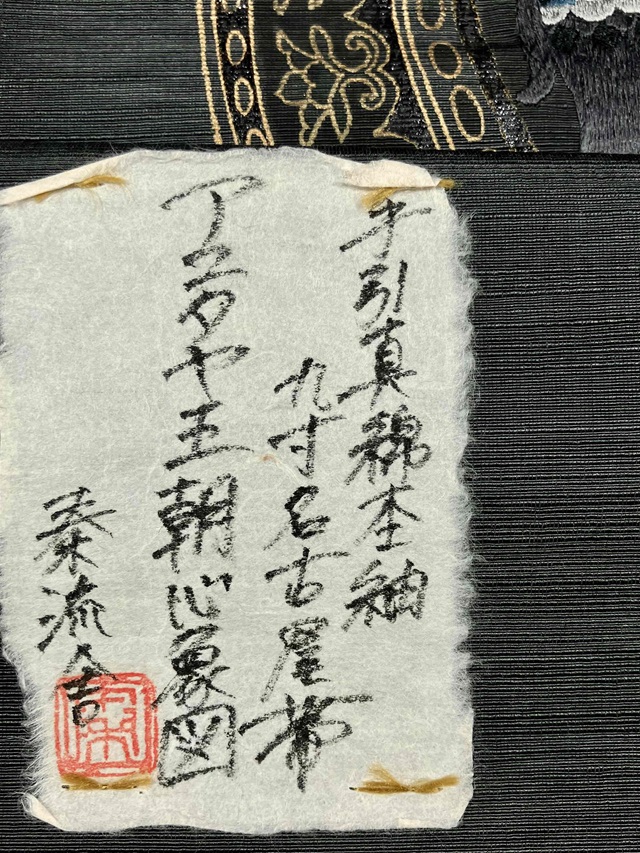 手引真綿本紬
九寸名古屋帯
アユタヤ王朝心象図
秦流舎